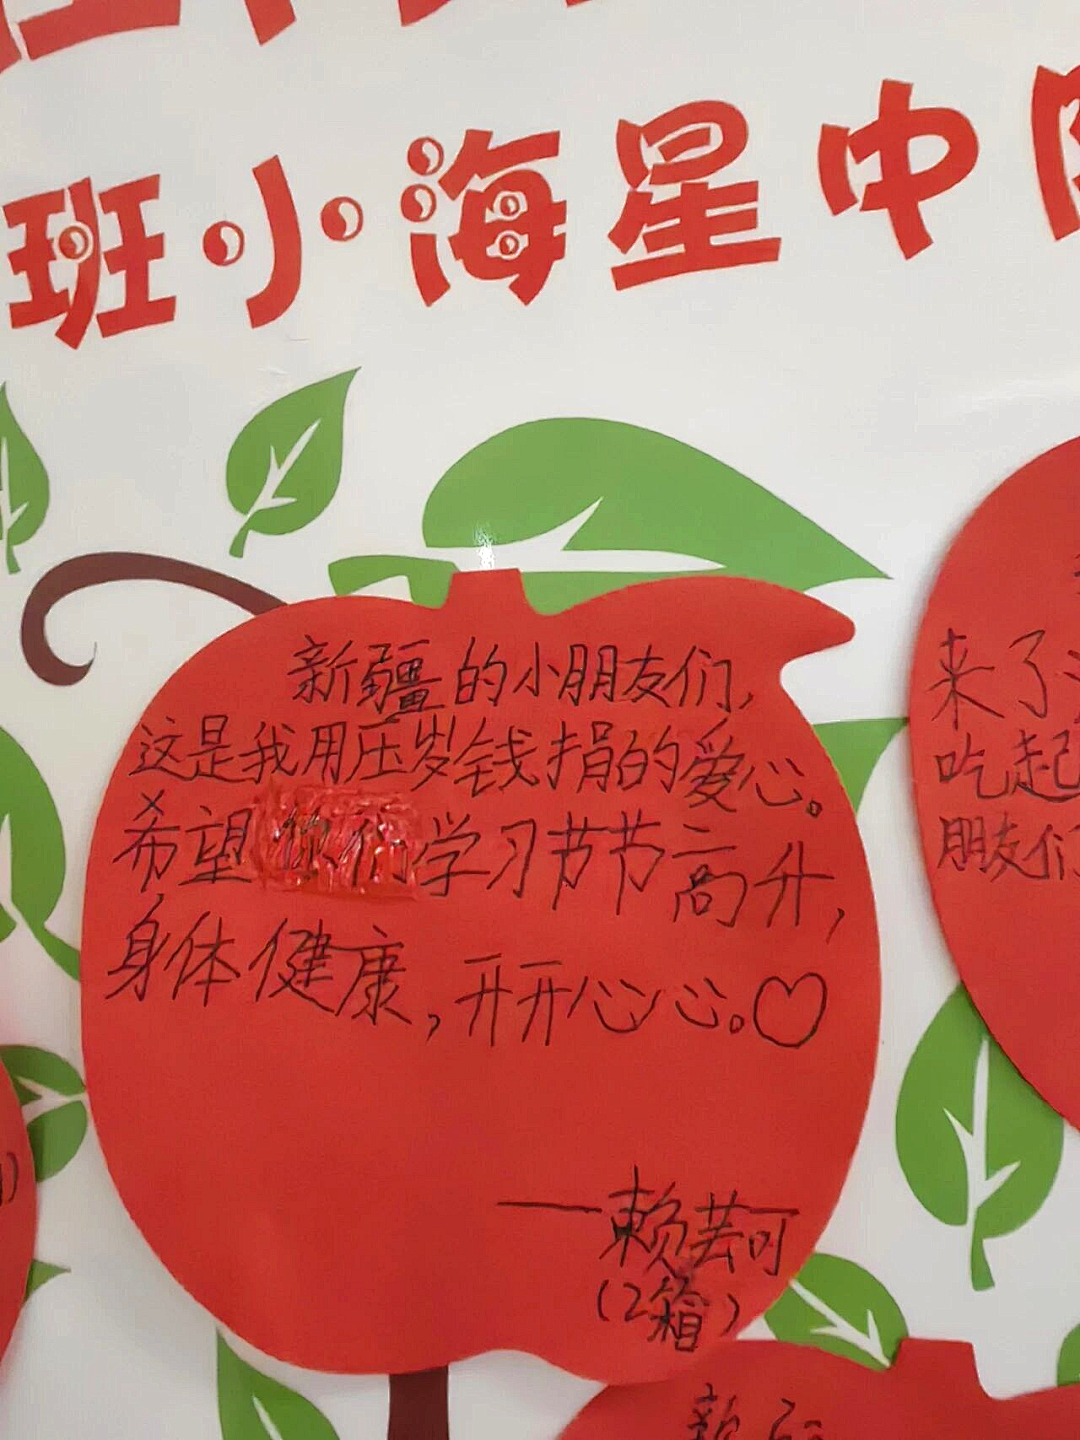 班小海星中
新疆的小朋友们,
这是我用压岁钱捐的爱心。
希望你们学习节节高升,
身体健康,开开心心。♡
——赖芸可
(2箱)
来了
吃起
朋友们